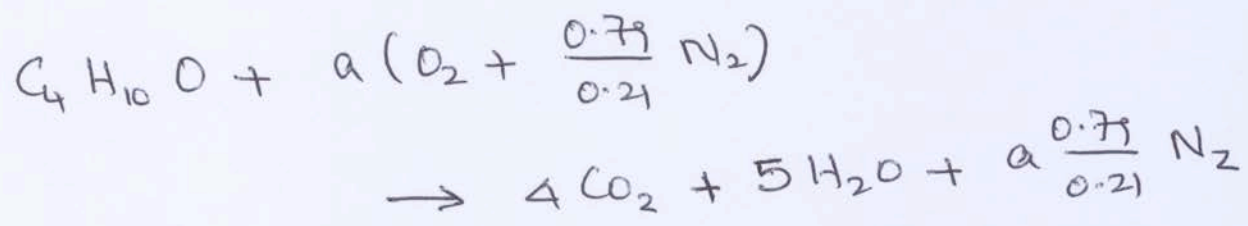 C₄ H₁₀ O + a (O₂ + 0.79/0.21 N₂)
→ 4 CO₂ + 5 H₂O + a 0.79/0.21 N₂